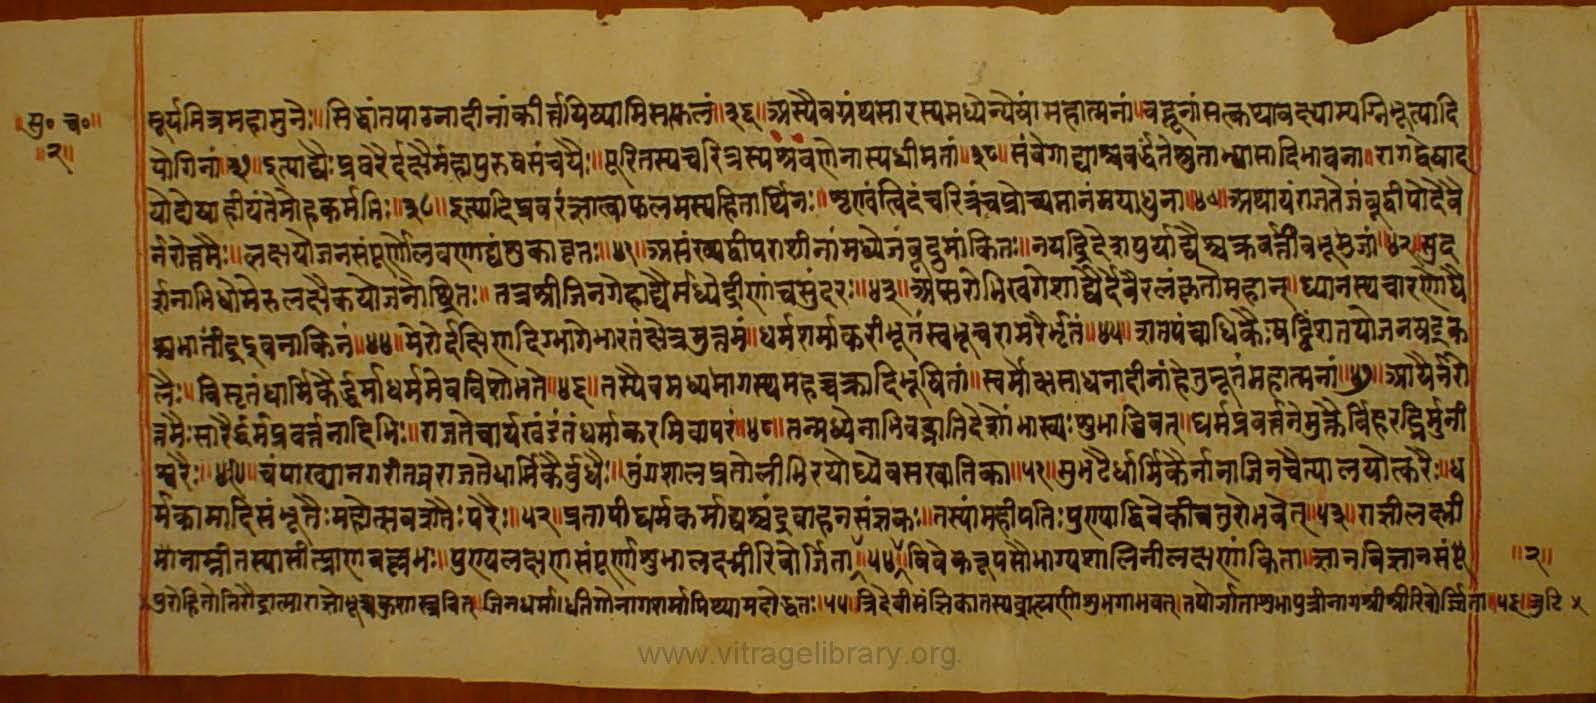 ॥सु॰ च॰॥
॥२॥
सूर्यमित्रमहामुनेः॥सिद्धांतपाठनादीनांकीर्त्तयिष्यामिसत्फलं॥३६॥अस्यैवग्रंथसारस्यमध्येन्येषांमहात्मनां॥बहूनांसत्कथावक्ष्याम्यग्निभूत्यादि
योगिनां॥३७॥इत्याद्यैःप्रवरैर्दक्षैर्महापुरुषसंचयैः॥पूरितस्यचरित्रस्यश्रवणेनास्यधीमतां॥३८॥संवेगाद्याश्चवर्द्धंतेश्रुताभ्यासादिभावना॥रागद्वेषाद
योदोषाहीयंतेमोहकर्मभिः॥३९॥इत्यादिप्रवरंज्ञात्वाफलमस्यहितार्थिनः॥शृण्वंत्विदंचरित्रंचप्रोच्यमानंमयाधुना॥४०॥अथायंराजतेजंबूद्वीपोदेवै
र्नरोत्तमैः॥लक्षयोजनसंपूर्णोलवणाद्यंशुकावृतः॥४१॥असंख्यद्वीपराशीनांमध्येजंबूद्रुमांकितः॥नयद्रिदेशपुर्याद्यैश्चक्रवर्त्तीवभूभुजां॥४२॥सुद
र्शनाभिधोमेरुलक्षैकयोजनोच्छ्रितः॥तत्रश्रीजिनगेहाद्यैर्मध्येद्वीपांचसुंदरः॥४३॥अप्सरोभिखगेशाद्यैर्देवैरलंकृतोमहान्॥ध्यानस्थचारणौघै
श्चभातींदुइवनाकिनं॥४४॥मेरोर्दक्षिणदिग्भागेभारतंक्षेत्रमुत्तमं॥धर्मशर्माकरीभूतंखभूचरामरैर्भृतं॥४५॥शतपंचाधिकैःषड्विंशतयोजनषट्क
लैः॥विस्तृतंधार्मिकैर्द्धर्माधर्ममेवविशोभते॥४६॥तस्यैवमध्यभागस्थमहच्चक्रादिभूषितां॥स्वर्मोक्षसाधनादीनांहेतुभूतंमहात्मनां॥४७॥आर्यैर्नरो
त्तमैःसारैर्द्धर्मप्रवर्त्तनादिभिः॥राजतेचार्यखंडंतंधर्माकरमिवापरं॥४८॥तन्मध्येनाभिवद्भातिदेशोंगाख्यःशुभाश्रिवत्॥धर्मप्रवर्त्तनेमुक्तैर्विहरद्भिर्मुनी
श्वरैः॥४९॥चंपाख्यानगरीतत्रराजतेधार्मिकैर्बुधैः॥तुंगशालप्रतोलीभिरयोध्येवसखातिका॥५१॥सुभटैर्धार्मिकैर्नानाजिनचैत्यालयोत्करैः॥ध
र्मकामादिसंभूतैःमहोत्सवशतैःपरैः॥५२॥प्रतापीधर्मकर्माद्यश्चंद्रवाहनसंज्ञकः॥तस्यांमहीपतिःपुण्याद्विवेकीचतुरोभवेत्॥५३॥राज्ञीलक्ष्मी
मानाम्नीतस्यासीत्प्राणवल्लभा॥पुण्यलक्षणसंपूर्णाशुभालक्ष्मीरिवोर्जिता॥५४॥विवेकरूपसौभाग्यशालिनीलक्षणांकिता॥ज्ञानविज्ञानसंपू
॥२॥
पुरोहितोतिरौद्रात्माराज्ञोभूच्चकुशास्त्रवित्॥जिनधर्माधतिगोनागशर्मामिथ्यामदोद्धतः॥५५॥त्रिदेवीसंज्ञिकातस्यब्राह्मणीशुभगाभवत्॥तयोर्जाताशुभापुत्रीनागश्रीश्रीरिवोर्ज्जिता॥५६॥त्रुटि ५
www.vitragelibrary.org